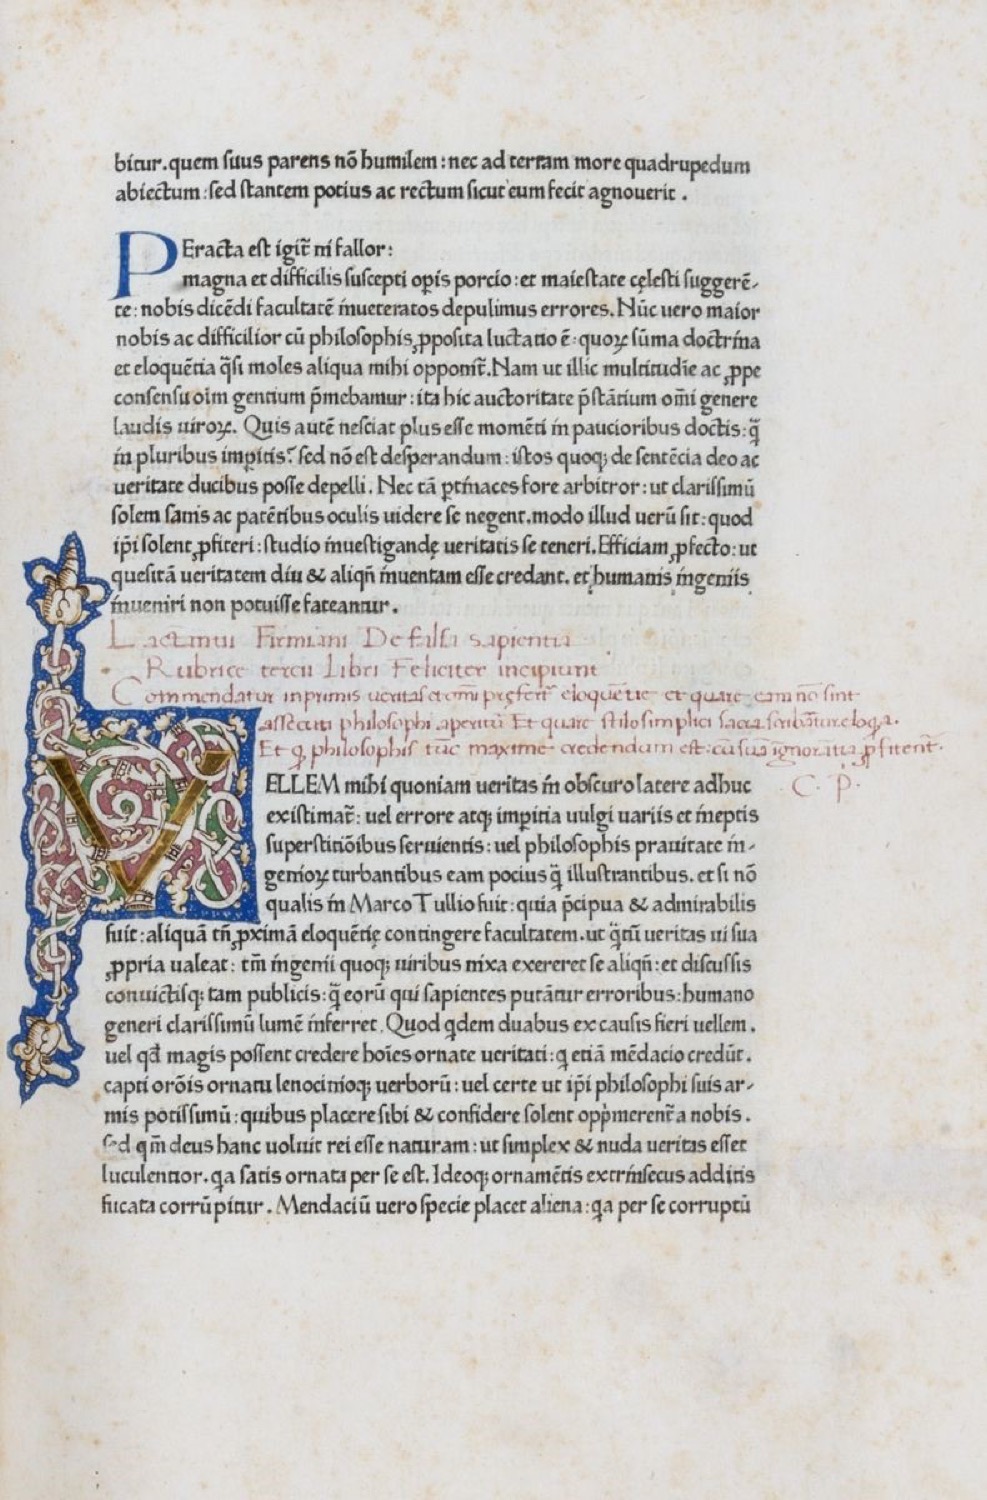 bitur. quem suus parens nõ humilem : nec ad terram more quadrupedum
abiectum : sed stantem potius ac rectum sicut eum fecit agnouerit .
PEracta est igit̃ ni fallor :
magna et difficilis suscepti opis porcio : et maiestate cęlesti suggerẽ-
te : nobis dicẽdi facultatẽ inueteratos depulimus errores. Nũc uero maior
nobis ac difficilior cũ philosophis ꝓposita luctatio ẽ : quoꝝ sũma doctrina
et eloquẽtia q̃si moles aliqua mihi opponit̃. Nam ut illic multitudĩe ac ꝓpe
consensu oĩm gentium p̃mebamur : ita hic auctoritate p̃stãtium om̃i genere
laudis uiroꝝ. Quis autẽ nesciat plus esse momẽti in paucioribus doctis : q̃
in pluribus impitis? sed nõ est desperandum : istos quoqꝫ de sentẽcia deo ac
ueritate ducibus posse depelli . Nec tã ꝑtinaces fore arbitror : ut clarissimũ
solem sanis ac patẽtibus oculis uidere se negent. modo illud uerũ sit : quod
ip̃i solent ꝓfiteri : studio inuestigandę ueritatis se teneri. Efficiam ꝓfecto : ut
quesitã ueritatem diu & aliqñ inuentam esse credant. et humanis ingeniis
inueniri non potuisse fateantur .
Lactantii Firmiani De falsa sapientia
Rubrice tercii Libri Feliciter incipiunt
Commendatur inprimis ueritas et om̃i p̃fert̃ eloquẽtie et quare eam nõ sint
assecuti philosophi aperitũ Et quare stilo simplici sacra scribãtur eloq̃a .
Et q̃ philosophis tũc maxime credendum est : cũ suã ignoratiã ꝓfitent̃ .
C . P .
VELLEM mihi quoniam ueritas in obscuro latere adhuc
existimat̃ : uel errore atqꝫ impitia uulgi uariis et ineptis
superstitiõibus seruientis : uel philosophis prauitate in-
genioꝝ turbantibus eam pocius q̃ illustrantibus. et si nõ
qualis in Marco Tullio fuit : quia p̃cipua & admirabilis
fuit : aliquã tñ ꝓximã eloquẽtię contingere facultatem. ut q̃tũ ueritas ui sua
ꝓpria ualeat : tm̃ ingenii quoqꝫ uiribus nixa exereret se aliqñ : et discussis
conuictisqꝫ tam publicis : q̃ eorũ qui sapientes putãtur erroribus : humano
generi clarissimũ lumẽ inferret . Quod qdem duabus ex causis fieri uellem .
uel qđ magis possent credere hoĩes ornate ueritati : q etiã mẽdacio credũt .
capti orõis ornatu lenocinioqꝫ uerborũ : uel certe ut ip̃i philosophi suis ar-
mis potissimũ : quibus placere sibi & confidere solent opp̃merent̃ a nobis .
sed qm̃ deus hanc uoluit rei esse naturam : ut simplex & nuda ueritas esset
luculentior. qa satis ornata per se est. Ideoqꝫ ornamẽtis extrinsecus additis
fucata corrũpitur . Mendaciũ uero specie placet aliena : qa per se corruptũ